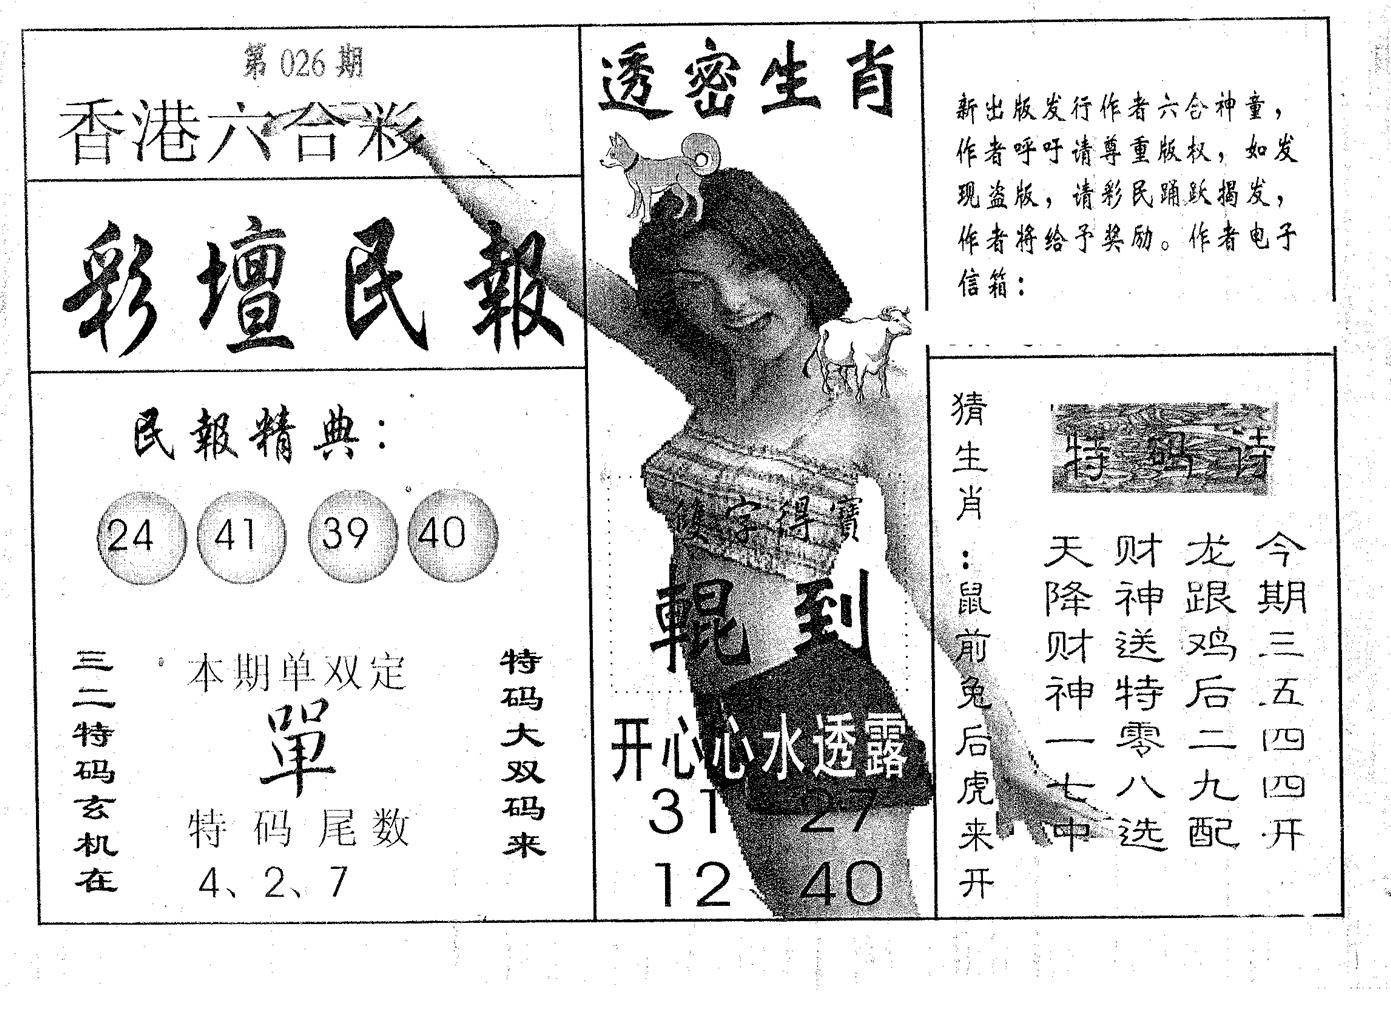 第 026 期
香港六合彩
彩壇民報
民報精典：
24 41 39 40
三二特码玄机在
本期单双定
單
特码尾数
4、2、7
特码大双码来
透密生肖
雙字得寶
輥到
开心心水透露
31 27
12 40
新出版发行作者六合神童，
作者呼吁请尊重版权，如发
现盗版，请彩民踊跃揭发，
作者将给予奖励。作者电子
信箱：
猜生肖：鼠前兔后虎来开
特码诗
今期三五四四开
龙跟鸡后二九配
财神送特零八选
天降财神一七中